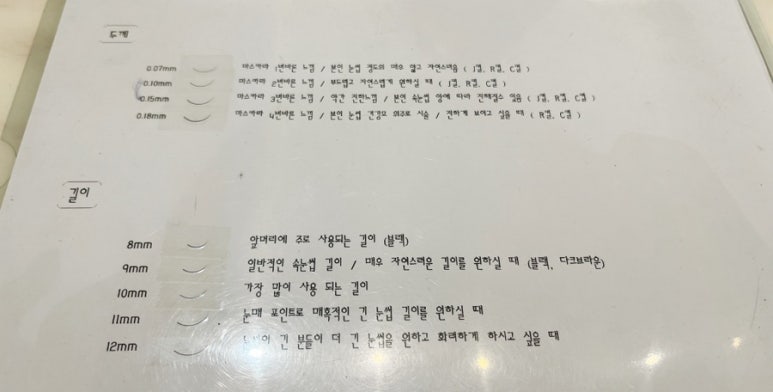 두께
0.07mm 마스카라 1번바른 느낌 / 본인 눈썹 정도의 매우 얇고 자연스러움 ( J컬, R컬, C컬 )
0.10mm 마스카라 2번바른 느낌 / 부드럽고 자연스럽게 원하실 때 ( J컬, R컬, C컬 )
0.15mm 마스카라 3번바른 느낌 / 약간 진한느낌 / 본인 속눈썹 양에 따라 진해질수 있음 ( J컬, R컬, C컬 )
0.18mm 마스카라 4번바른 느낌 / 본인 눈썹 건강모 위주로 시술 / 진하게 보이고 싶을 때 ( R컬, C컬 )
길이
8mm 앞머리에 주로 사용되는 길이 (블랙)
9mm 일반적인 속눈썹 길이 / 매우 자연스러운 길이를 원하실 때 (블랙, 다크브라운)
10mm 가장 많이 사용 되는 길이
11mm 눈매 포인트로 매혹적인 긴 눈썹 길이를 원하실 때
12mm 긴 분들이 더 긴 눈썹을 원하고 화려하게 하시고 싶을 때